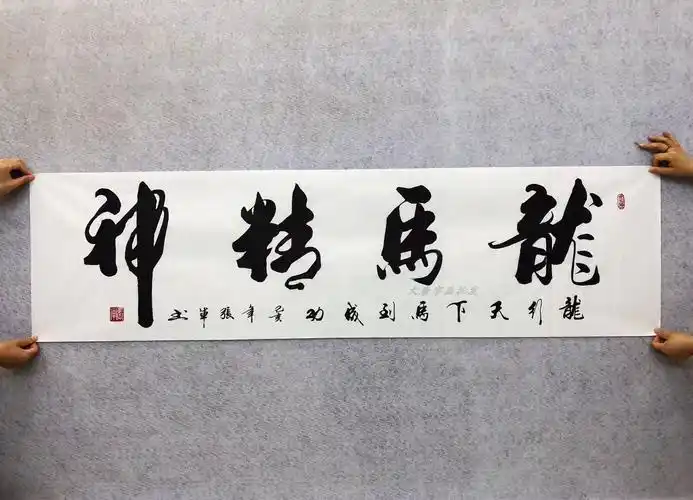 龍馬精神
龍行天下馬到成功癸年張軍书